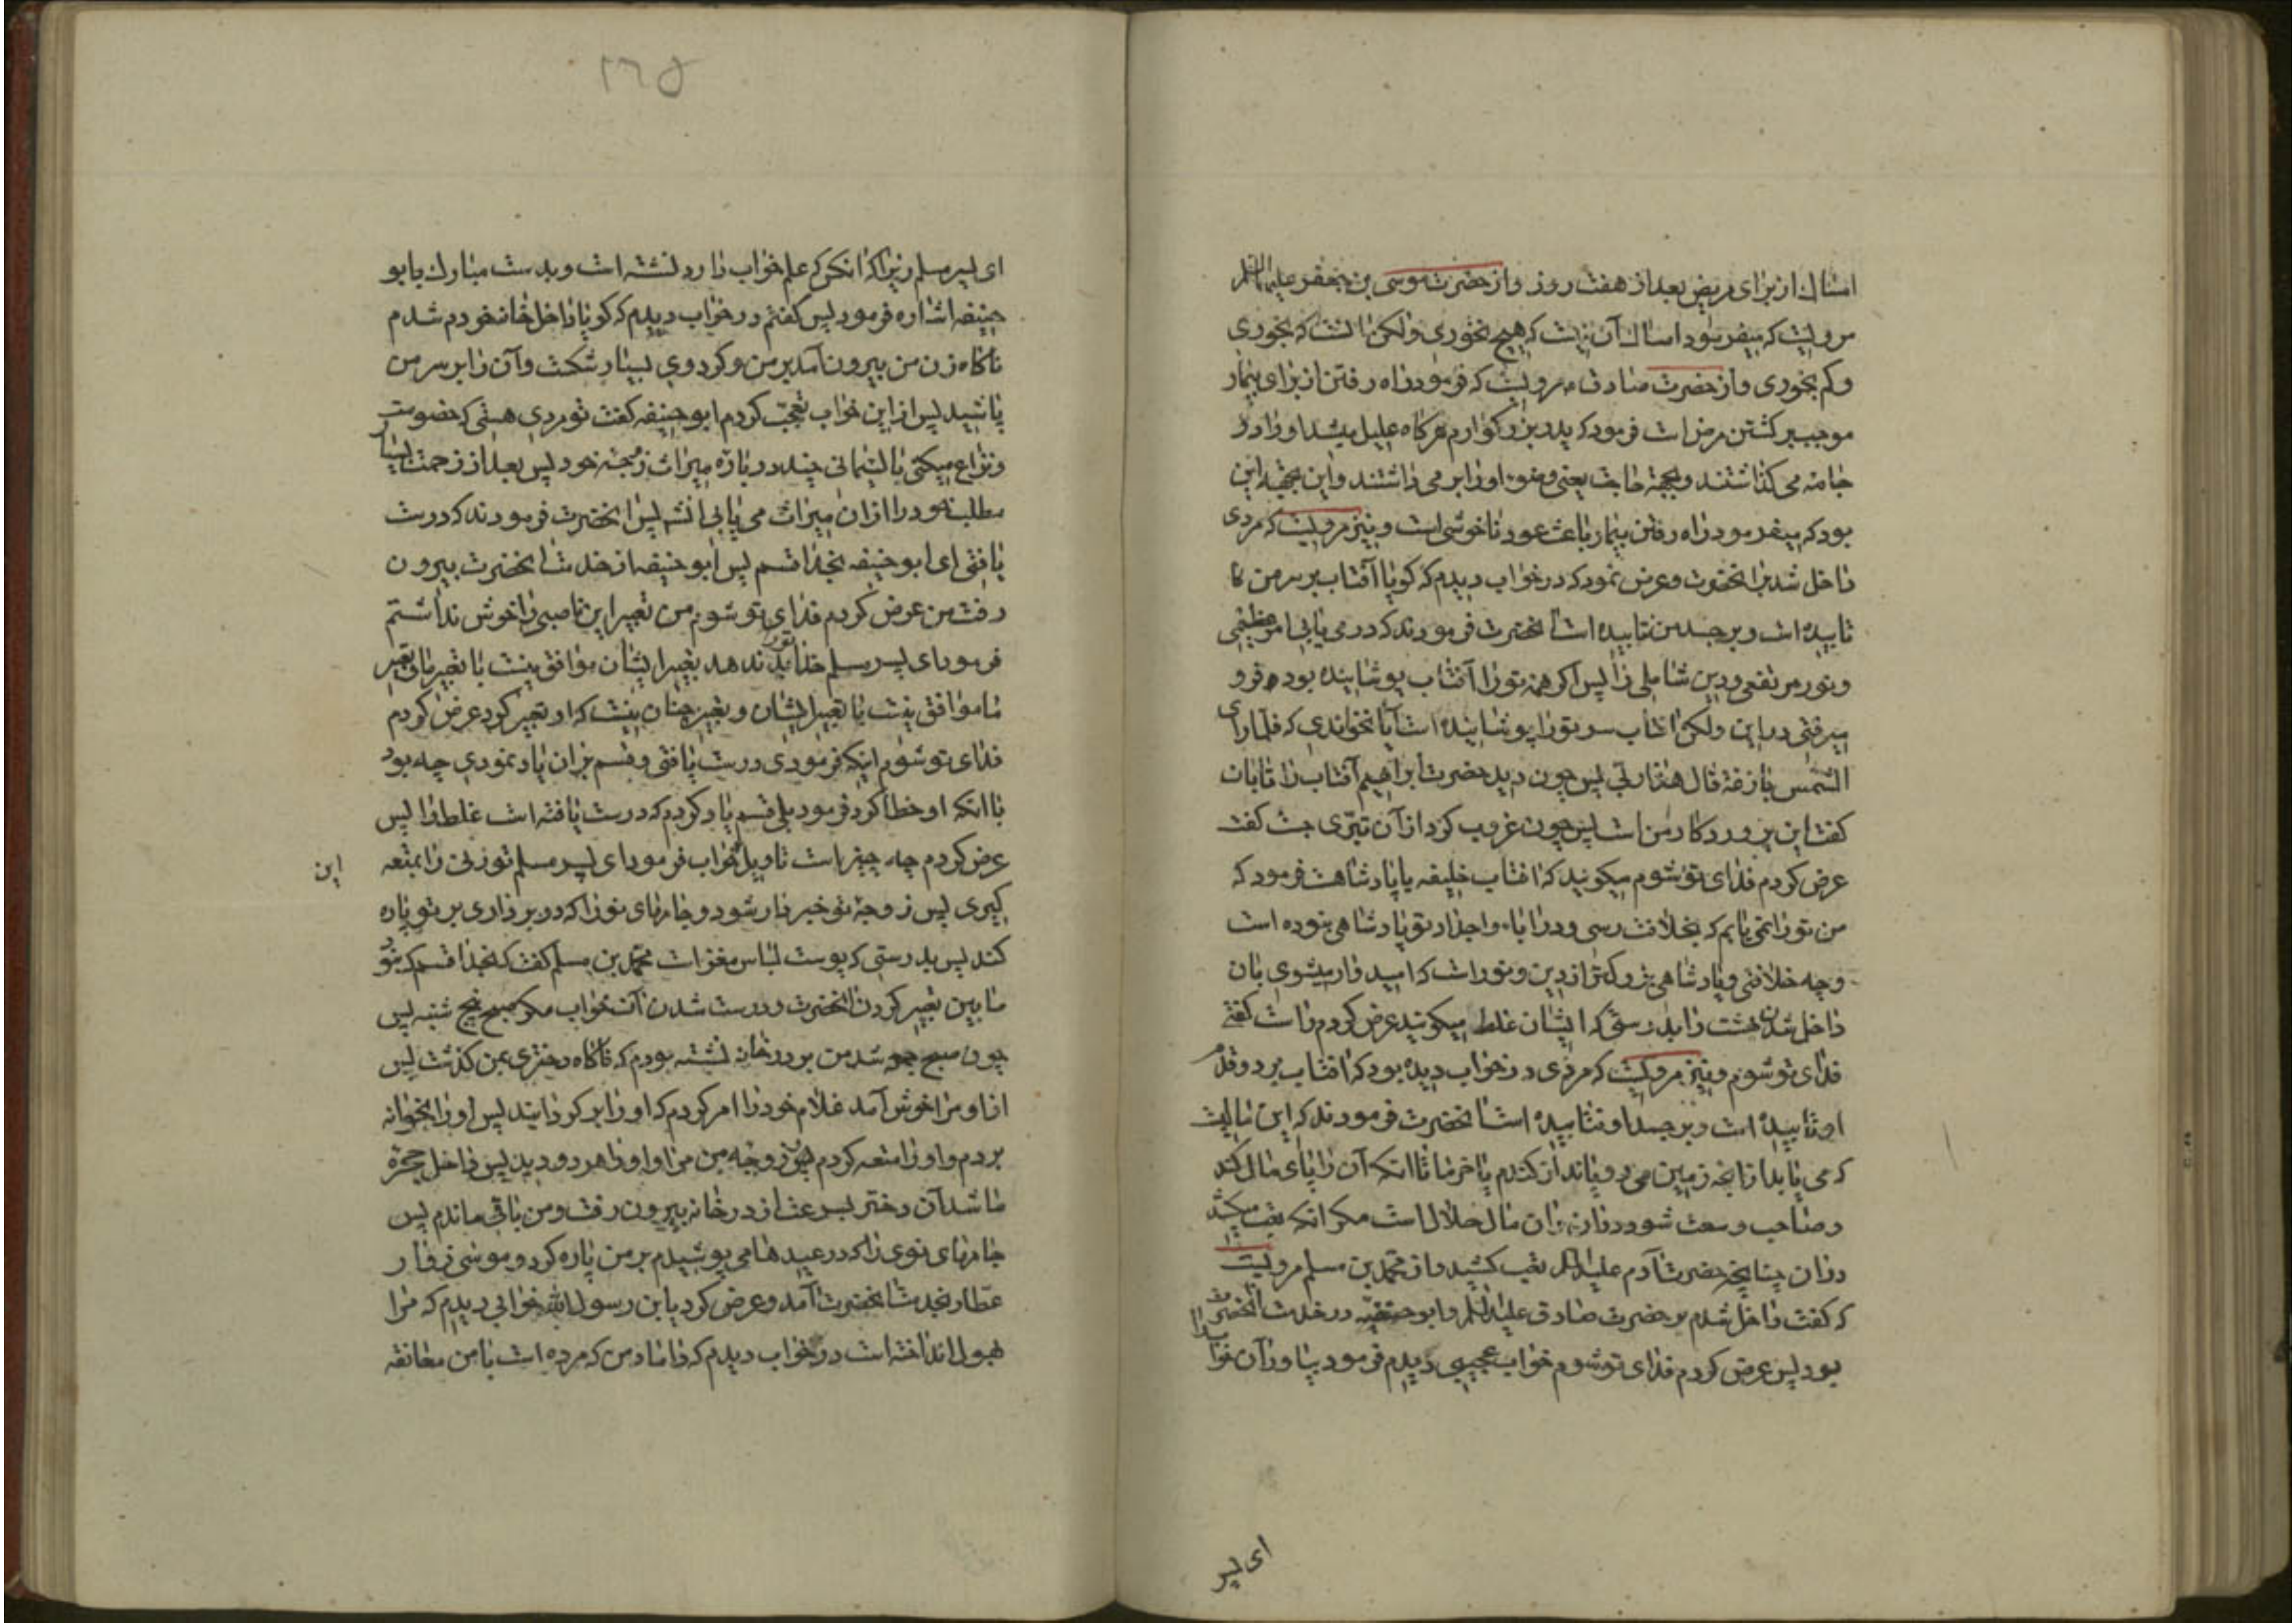 امساك از براى مريض بعد از هفت روز و از حضرت موسى بن جعفر عليهما السلم
مرويست كه ميفرمود امساك آن نيست كه هيچ نخورى ولكن آنست كه بخورى
وكم بخورى و از حضرت صادق م مرويست كه فرمود راه رفتن از براى بيمار
موجب بر كشتن مرض است فرمود كه پدر بزركوارم هر كاه عليل ميشد او را در
جامه مى كذاشتند و بجهة حاجت يعنى وضوء او را بر مى داشتند و اين بجهة اين
بود كه ميفرمود راه رفتن بيمار باعث عود ناخوشى است و نيز مرويست كه مردى
داخل شد بر انحضرت و عرض نمود كه در خواب ديدم كه كويا آفتاب بر سر من
تابيده است و بر جسد من نتابيده است انحضرت فرمودند كه در مى يابى امر عظيمى
و نور مرتفعى و دين شاملى را پس اكر همه تو را آفتاب پوشانيده بود فرو
ميرفتى در اين ولكن افتاب سر تو را پوشانيده است آيا نخواندى كه فلما راى
الشمس بازغة قال هذا ربى پس چون ديد حضرت ابراهيم آفتاب را تابان
كفت اين پروردكار من است پس چون غروب كرد از آن تبرى جست كفت
عرض كردم فداى تو شوم ميكويند كه افتاب خليفه يا پادشاهست فرمود كه
من تو را نمى يابم كه بخلافت رسى و در اباء و اجداد تو پادشاهى نبوده است
و چه خلافتى و پادشاهى بزركتر از دين و نور است كه اميدوار ميشوى بان
داخل شدن بهشت را بدرستى كه ايشان غلط ميكويند عرض كردم راست كفتى
فداى تو شوم و نيز مرويست كه مردى در خواب ديده بود كه افتاب بر دو قدم
او تابيده است و بر جسد او نتابيده است انحضرت فرمودند كه اين ماليست
كه مى يابد از انچه زمين مى روياند از كندم يا خرما تا انكه آن را پاى مال كند
و صاحب وسعت شود در ان مال حلال است مكر انكه تعب ميكشد
در ان چنانچه حضرت آدم عليه السلم تعب كشيد و از محمد بن مسلم مرويست
كه كفت داخل شدم بر حضرت صادق عليه السلم و ابو حنيفه در خدمت انحضرت
بود پس عرض كردم فداى تو شوم خواب عجيبى ديدم فرمود بيا ور آن خواب را
اى پسر
١٦٥
اى پسر مسلم زيرا كه انكس كه علم خواب را دارد نشسته است و بدست مبارك بابو
حنيفه اشاره فرمود پس كفتم در خواب ديدم كه كويا داخل خانه خودم شدم
ناكاه زن من بيرون آمد بر من و كردوى بسيار شكست و آن را بر سر من
پاشيد پس از اين خواب تعجب كردم ابو حنيفه كفت تو مردى هستى كه خصومت
و نزاع ميكنى با لئيمانى چند در باره ميراث زوجه خود پس بعد از زحمت بسيار
مطلب خود را از ان ميراث مى يابى انشاء پس انحضرت فرمودند كه درست
يافتى اى ابو حنيفه بخدا قسم پس ابو حنيفه از خدمت انحضرت بيرون
رفت من عرض كردم فداى تو شوم من تعبير اين ناصبى را خوش نداشتم
فرمود اى پسر مسلم خدا بد بتو ندهد تعبير ايشان موافق نيست با تعبير ما و تعبير
ما موافق نيست با تعبير ايشان و تعبير چنان نيست كه او تعبير كرد عرض كردم
فداى تو شوم اينكه فرمودى درست يافتى و قسم بر ان ياد نمودى چه بود
با انكه او خطا كرد فرمود بلى قسم ياد كردم كه درست يافته است غلط را پس
عرض كردم چه چيز است تاويل خواب فرمود اى پسر مسلم تو زنى را بمتعه
اين
كيرى پس زوجه تو خبردار شود و جامهاى نو را كه در بر دارى بر تو پاره
كند پس بدرستى كه پوست لباس مغز است محمد بن مسلم كفت كه بخدا قسم كه نبود
ما بين تعبير كردن انحضرت و درست شدن آن خواب مكر صبح پنج شنبه پس
چون صبح جمعه شد من بر در خانه نشسته بودم كه ناكاه دخترى بمن كذشت پس
از او مرا خوش آمد غلام خود را امر كردم كه او را بر كردانيد پس او را بخانه
بردم و او را متعه كردم پس زوجه من مرا و او را هر دو ديد پس داخل حجره
ما شد آن دختر بسرعت از در خانه بيرون رفت و من باقى ماندم پس
جامهاى نوى را كه در عيدها مى پوشيدم بر من پاره كرد و موسى زوار
عطار بخدمت انحضرت آمد و عرض كرد يا بن رسول الله خوابى ديدم كه مرا
بهول انداخته است در خواب ديدم كه داماد من كه مرده است با من معانقه